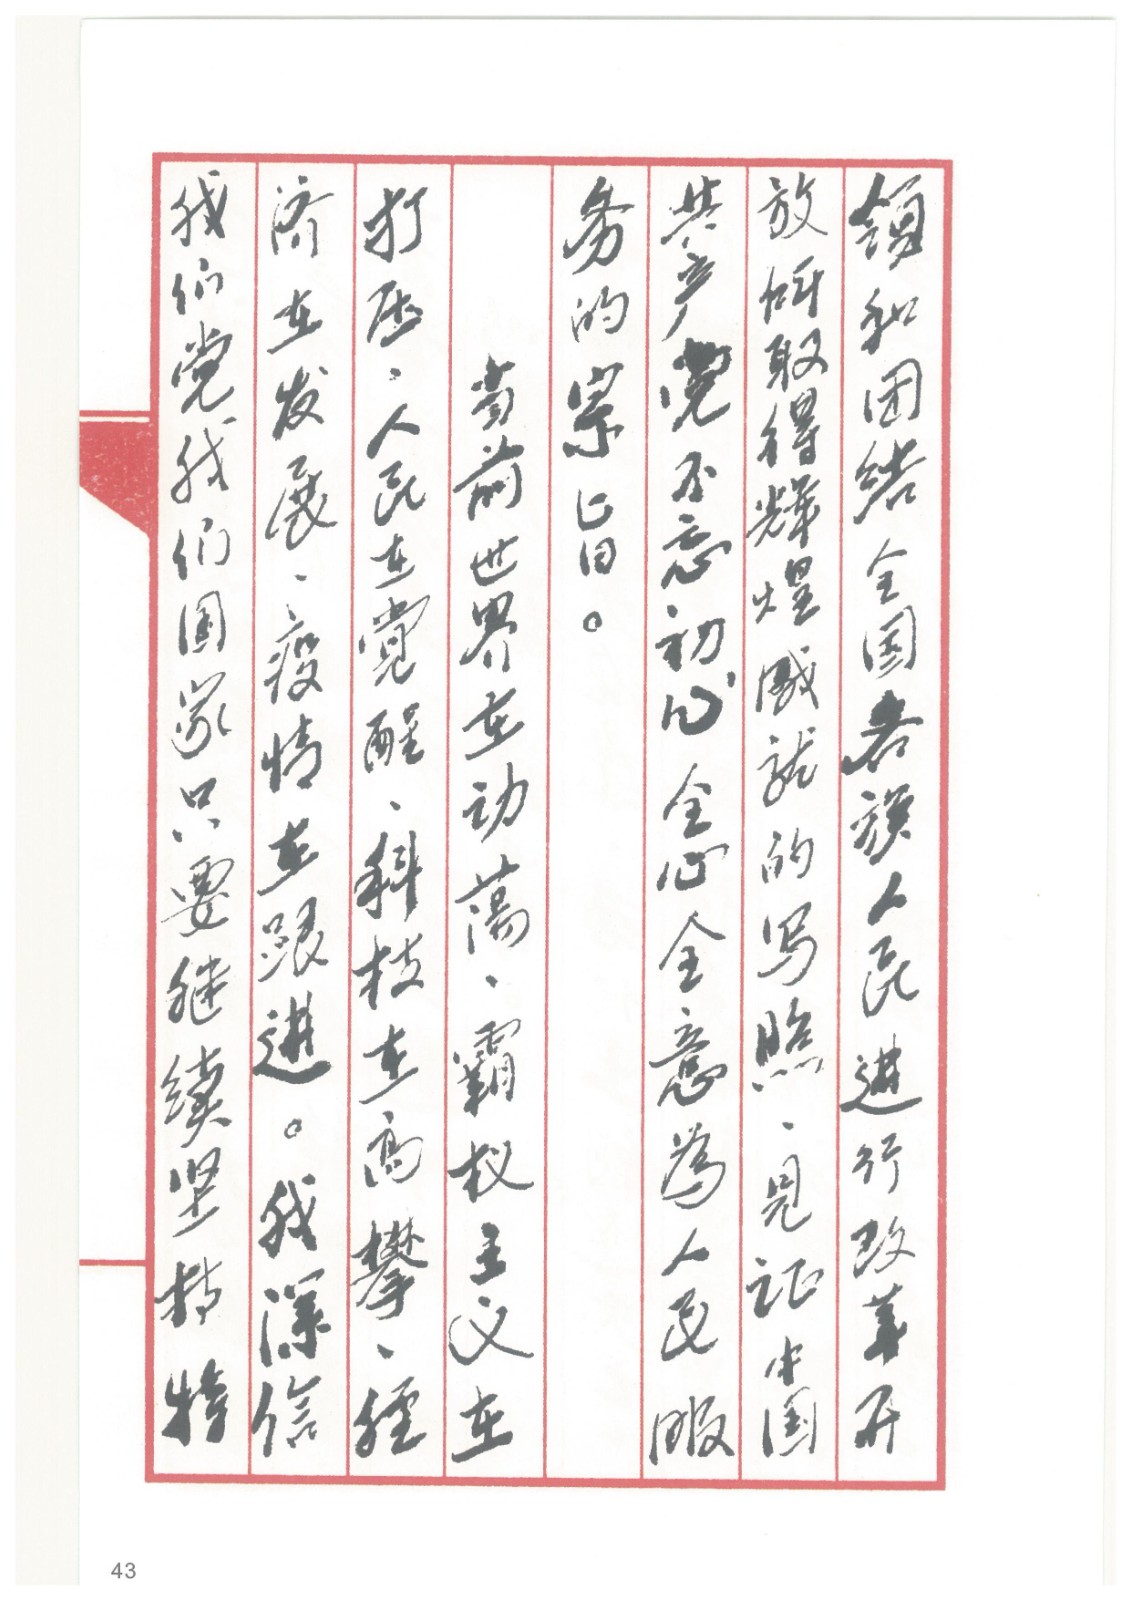 领和团结全国各族人民进行改革开
放所取得辉煌成就的写照、见证中国
共产党不忘初心全心全意为人民服
务的宗旨。
当前世界在动荡、霸权主义在
打压、人民在觉醒、科技在高攀、经
济在发展、疫情在跟进。我深信
我们党我们国家只要继续坚持特
43